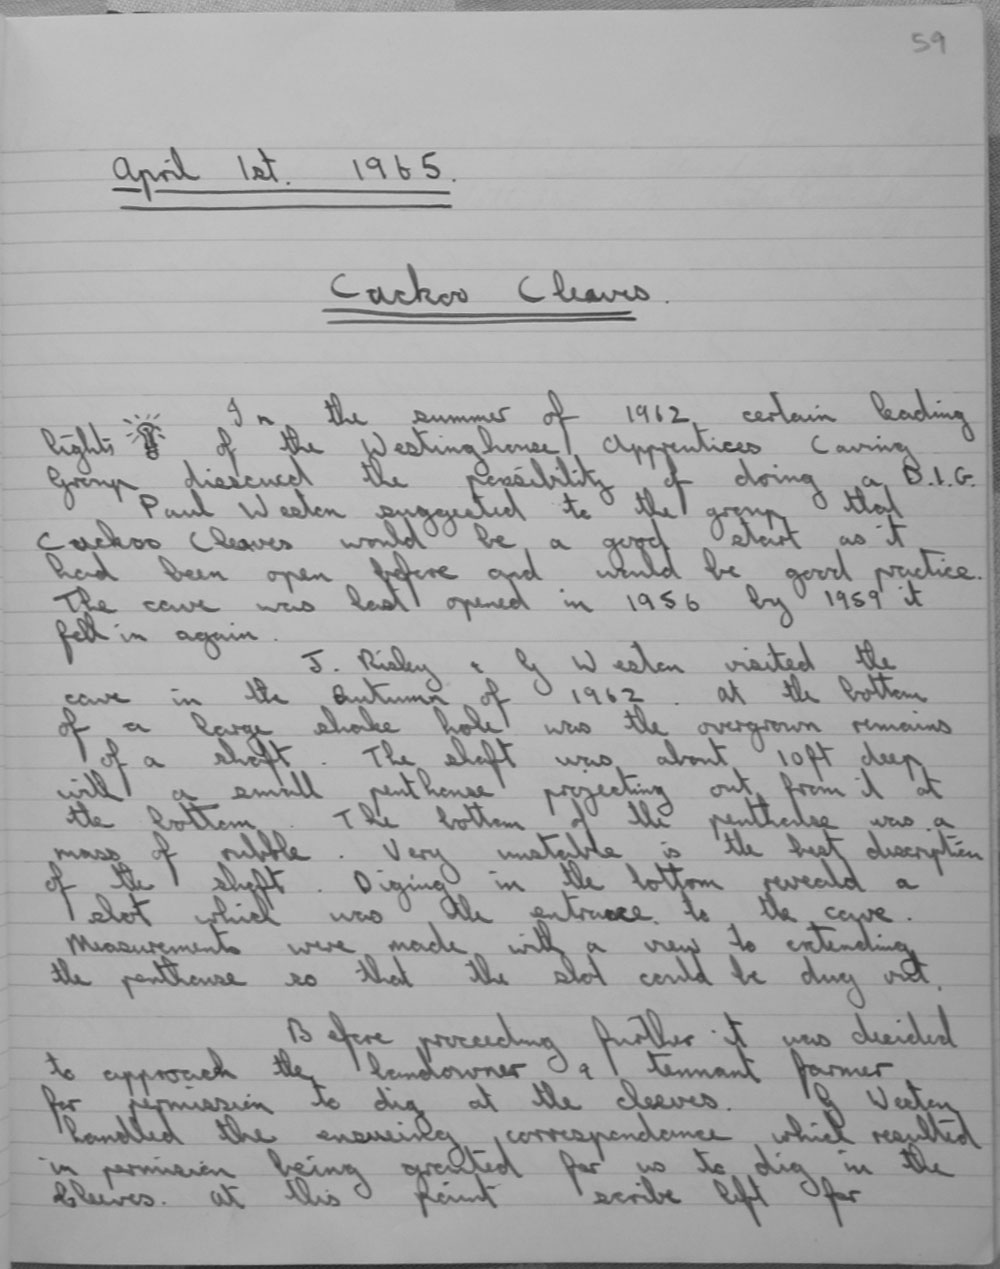 59
April 1st. 1965.
Cuckoo Cleaves.
In the summer of 1962 certain leading
lights of the Westinghouse Apprentices Caving
Group discsused the possibility of doing a B.I.G.
Paul Weston suggested to the group that
Cuckoo Cleaves would be a good start as it
had been open before and would be good practice.
The cave was last opened in 1956 by 1959 it
fell in again.
J. Risley & G Weston visited the
cave in the Autumn of 1962. At the bottom
of a large shake hole was the overgrown remains
of a shaft. The shaft was about 10ft deep
with a small penthouse projecting out from it at
the bottom. The bottom of the penthouse was a
mass of rubble. Very unstable is the best description
of the shaft. Diging in the bottom reveald a
slot which was the entrance to the cave.
Measurements were made with a view to extending
the penthouse so that the slot could be dug out.
Before proceeding further it was decided
to approach the landowner & tennant farmer
for permission to dig at the cleeves. G Weston
handled the ensueing correspondance which resulted
in permision being granted for us to dig in the
Cleeves. At this point scribe left for